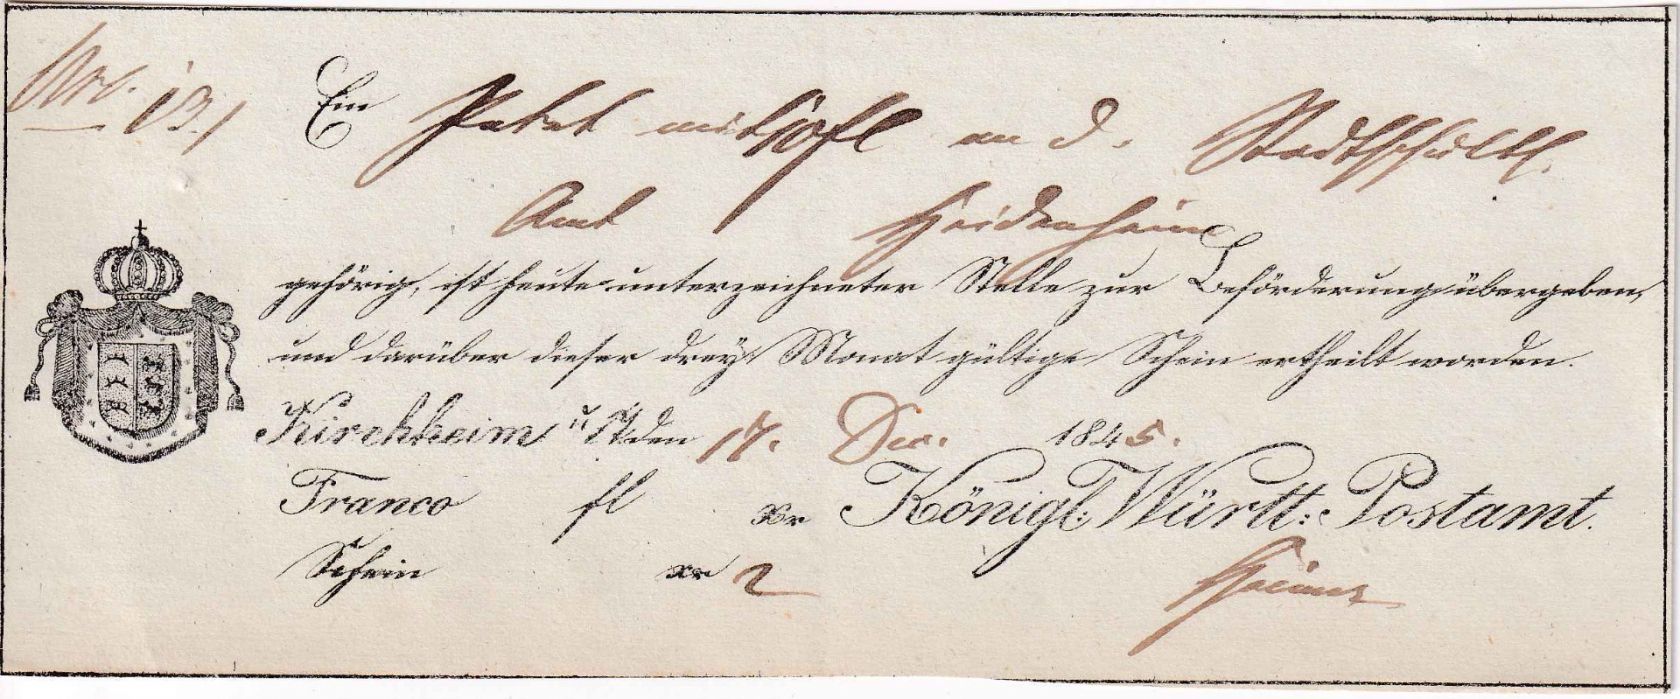 Nro. 131
Ein Paket mit 10 fl an d. Stadtschulth.
Amt Heidenheim
gehörig, ist heute unterzeichneter Stelle zur Beförderung übergeben,
und darüber dieser drey Monat gültige Schein ertheilt worden.
Kirchheim u T. den 17. Dec. 1845.
Franco fl xr Königl: Württ: Postamt.
Schein xr 2